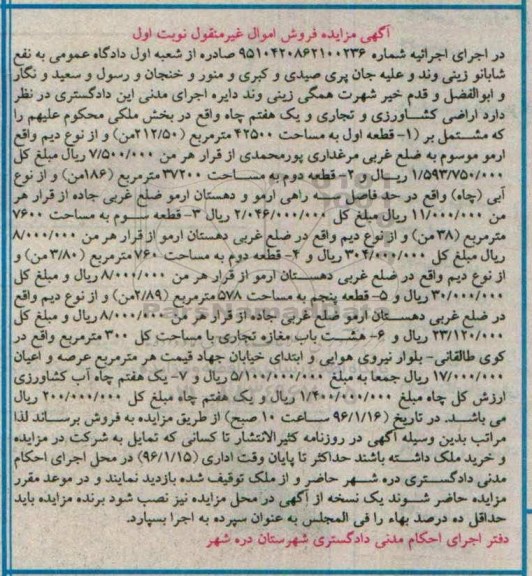 آگهی مزایده فروش اموال غیرمنقول نوبت اول
در اجرای اجرائیه شماره ۹۵۱۰۴۲۰۸۶۲۱۰۰۲۳۶ صادره از شعبه اول دادگاه عمومی به نفع
شابانو زینی وند و علیه جان پری صیدی و کبری و منور و خنجان و رسول و سعید و نگار
و ابوالفضل و قدم خیر شهرت همگی زینی وند دایره اجرای مدنی این دادگستری در نظر
دارد اراضی کشاورزی و تجاری و یک هفتم چاه واقع در بخش ملکی محکوم علیهم را
که مشتمل بر (۱- قطعه اول به مساحت ۴۲۵۰۰ مترمربع (۲۱۲/۵۰من) و از نوع دیم واقع
ارمو موسوم به ضلع غربی مرغداری پورمحمدی از قرار هر من ۷/۵۰۰/۰۰۰ ریال مبلغ کل
۱/۵۹۳/۷۵۰/۰۰۰ ریال و ۲- قطعه دوم به مساحت ۳۷۲۰۰ مترمربع (۱۸۶من) و از نوع
آبی (چاه) واقع در حد فاصل سه راهی ارمو و دهستان ارمو ضلع غربی جاده از قرار هر
من ۱۱/۰۰۰/۰۰۰ ریال مبلغ کل ۲/۰۴۶/۰۰۰/۰۰۰ ریال ۳- قطعه سوم به مساحت ۷۶۰۰
مترمربع (۳۸من) و از نوع دیم واقع در ضلع غربی دهستان ارمو از قرار هر من ۸/۰۰۰/۰۰۰
ریال مبلغ کل ۳۰۴/۰۰۰/۰۰۰ ریال و ۴- قطعه دوم به مساحت ۷۶۰مترمربع (۳/۸۰من) و
از نوع دیم واقع در ضلع غربی دهستان ارمو از قرار هر من ۸/۰۰۰/۰۰۰ ریال و مبلغ کل
۳۰/۰۰۰/۰۰۰ ریال و ۵- قطعه پنجم به مساحت ۵۷۸مترمربع (۲/۸۹من) و از نوع دیم واقع
در ضلع غربی دهستان ارمو ضلع غربی جاده از قرار هر من ۸/۰۰۰/۰۰۰ ریال و مبلغ کل
۲۳/۱۲۰/۰۰۰ ریال و ۶- هشت باب مغازه تجاری با مساحت کل ۳۰۰ مترمربع واقع در
کوی طالقانی- بلوار نیروی هوایی و ابتدای خیابان جهاد قیمت هر مترمربع عرصه و اعیان
۱۷/۰۰۰/۰۰۰ ریال جمعا به مبلغ ۵/۱۰۰/۰۰۰/۰۰۰ ریال و ۷- یک هفتم چاه آب کشاورزی
ارزش کل چاه مبلغ ۱/۴۰۰/۰۰۰/۰۰۰ ریال و یک هفتم چاه مبلغ کل ۲۰۰/۰۰۰/۰۰۰ ریال
می باشد. در تاریخ (۹۶/۱/۱۶ ساعت ۱۰ صبح) از طریق مزایده به فروش برساند لذا
مراتب بدین وسیله آگهی در روزنامه کثیرالانتشار تا کسانی که تمایل به شرکت در مزایده
و خرید ملک داشته باشند حداکثر تا پایان وقت اداری (۹۶/۱/۱۵) در محل اجرای احکام
مدنی دادگستری دره شهر حاضر و از ملک توقیف شده بازدید نمایند و در موعد مقرر
مزایده حاضر شوند یک نسخه از آگهی در محل مزایده نیز نصب شود برنده مزایده باید
حداقل ده درصد بهاء را فی المجلس به عنوان سپرده به اجرا بسپارد.
دفتر اجرای احکام مدنی دادگستری شهرستان دره شهر